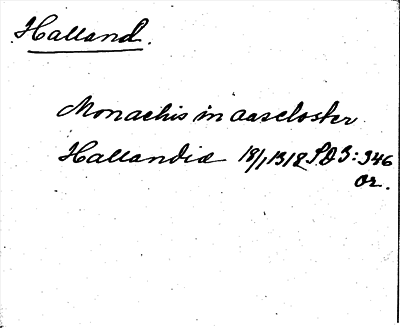 Halland.
Monachis in aascloster
Hallandiæ 18/1 1312 SD 3: 346
Or.